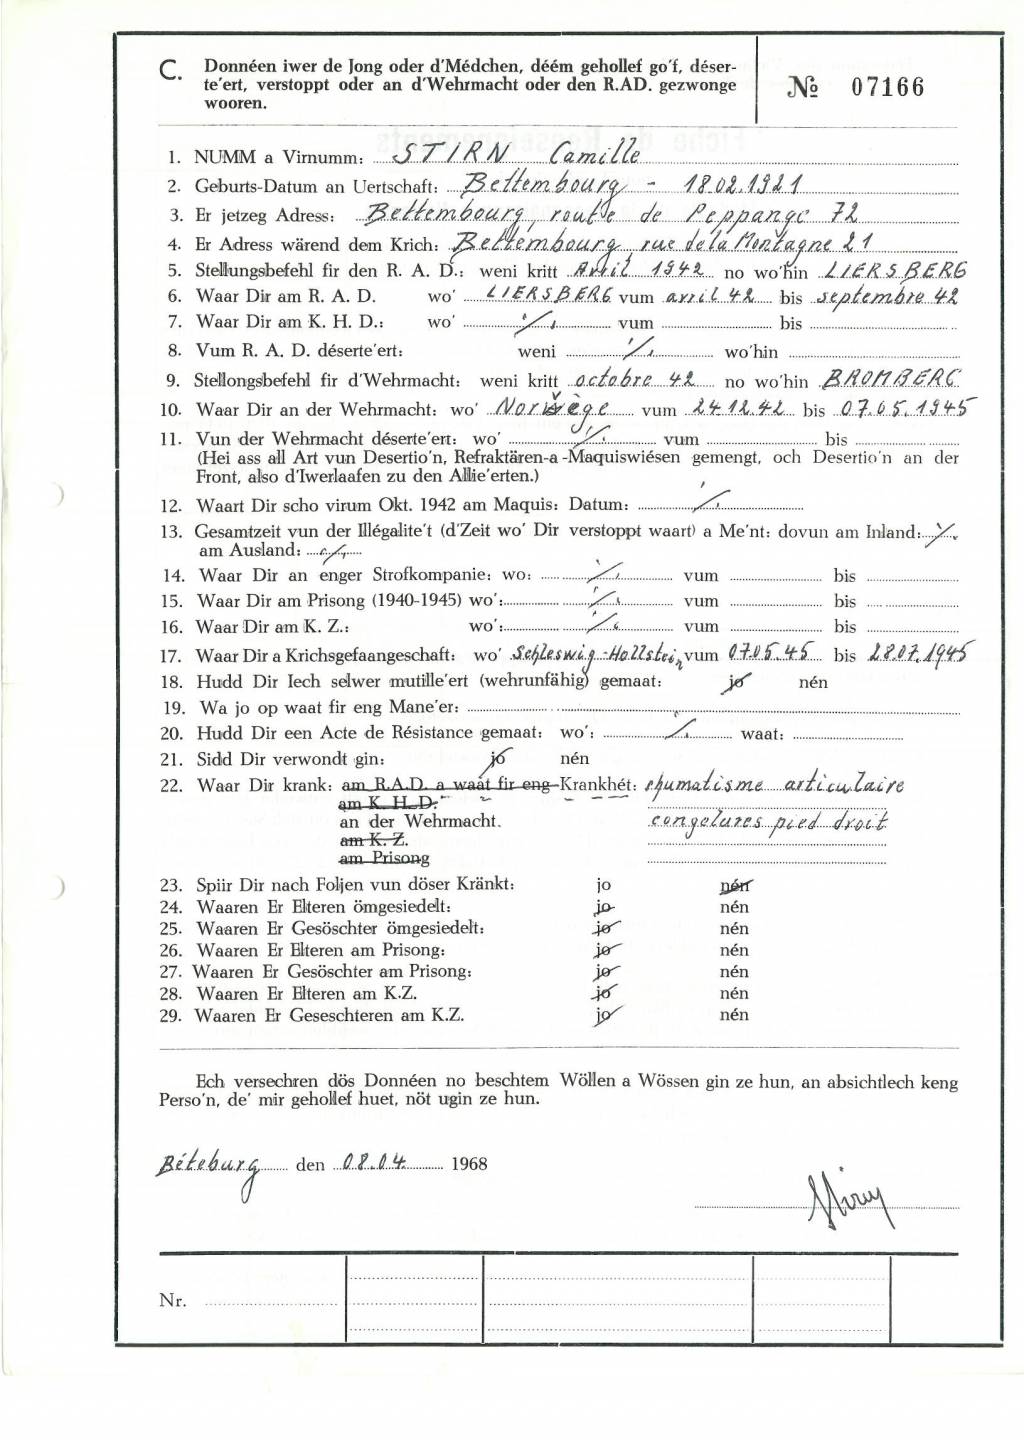 C. Donnéen iwer de Jong oder d'Médchen, déém gehollef go'f, déser-
te'ert, verstoppt oder an d'Wehrmacht oder den R.AD. gezwonge
wooren.
№ 07166
1. NUMM a Virnumm: STIRN Camille
2. Geburts-Datum an Uertschaft: Bettembourg - 18.02.1921
3. Er jetzeg Adress: Bettembourg, route de Peppange 72
4. Er Adress wärend dem Krich: Bettembourg, rue de la Montagne 21
5. Stellungsbefehl fir den R. A. D.: weni kritt Avril 1942 no wo'hin LIERSBERG
6. Waar Dir am R. A. D. wo' LIERSBERG vum avril 42 bis septembre 42
7. Waar Dir am K. H. D.: wo' ./. vum bis
8. Vum R. A. D. déserte'ert: weni ./. wo'hin
9. Stellongsbefehl fir d'Wehrmacht: weni kritt octobre 42 no wo'hin BROMBERG
10. Waar Dir an der Wehrmacht: wo' Norvège vum 24.12.42 bis 07.05.1945
11. Vun der Wehrmacht déserte'ert: wo' ./. vum bis
(Hei ass all Art vun Desertio'n, Refraktären-a-Maquiswiésen gemengt, och Desertio'n an der
Front, also d'Iwerlaafen zu den Allie'erten.)
12. Waart Dir scho virum Okt. 1942 am Maquis: Datum: ./.
13. Gesamtzeit vun der Illégalite't (d'Zeit wo' Dir verstoppt waart) a Me'nt: dovun am Inland: ./.
am Ausland: ./.
14. Waar Dir an enger Strofkompanie: wo: ./. vum bis
15. Waar Dir am Prisong (1940-1945) wo': ./. vum bis
16. Waar Dir am K. Z.: wo': ./. vum bis
17. Waar Dir a Krichsgefaangeschaft: wo' Schleswig-Hollstein vum 07.05.45 bis 28.07.1945
18. Hudd Dir Iech selwer mutille'ert (wehrunfähig) gemaat: jo nén
19. Wa jo op waat fir eng Mane'er:
20. Hudd Dir een Acte de Résistance gemaat: wo': ./. waat:
21. Sidd Dir verwondt gin: jo nén
22. Waar Dir krank: am R.A.D. a waat fir eng Krankhét: rhumatisme articulaire
am K. H. D.
an der Wehrmacht. congelures pied droit
am K. Z.
am Prisong
23. Spiir Dir nach Foljen vun döser Kränkt: jo nén
24. Waaren Er Elteren ömgesiedelt: jo nén
25. Waaren Er Gesöschter ömgesiedelt: jo nén
26. Waaren Er Elteren am Prisong: jo nén
27. Waaren Er Gesöschter am Prisong: jo nén
28. Waaren Er Elteren am K.Z. jo nén
29. Waaren Er Geseschteren am K.Z. jo nén
Ech versechren dös Donnéen no beschtem Wöllen a Wössen gin ze hun, an absichtlech keng
Perso'n, de' mir gehollef huet, nöt ugin ze hun.
Béteburg den 08.04. 1968
Stirn
Nr.